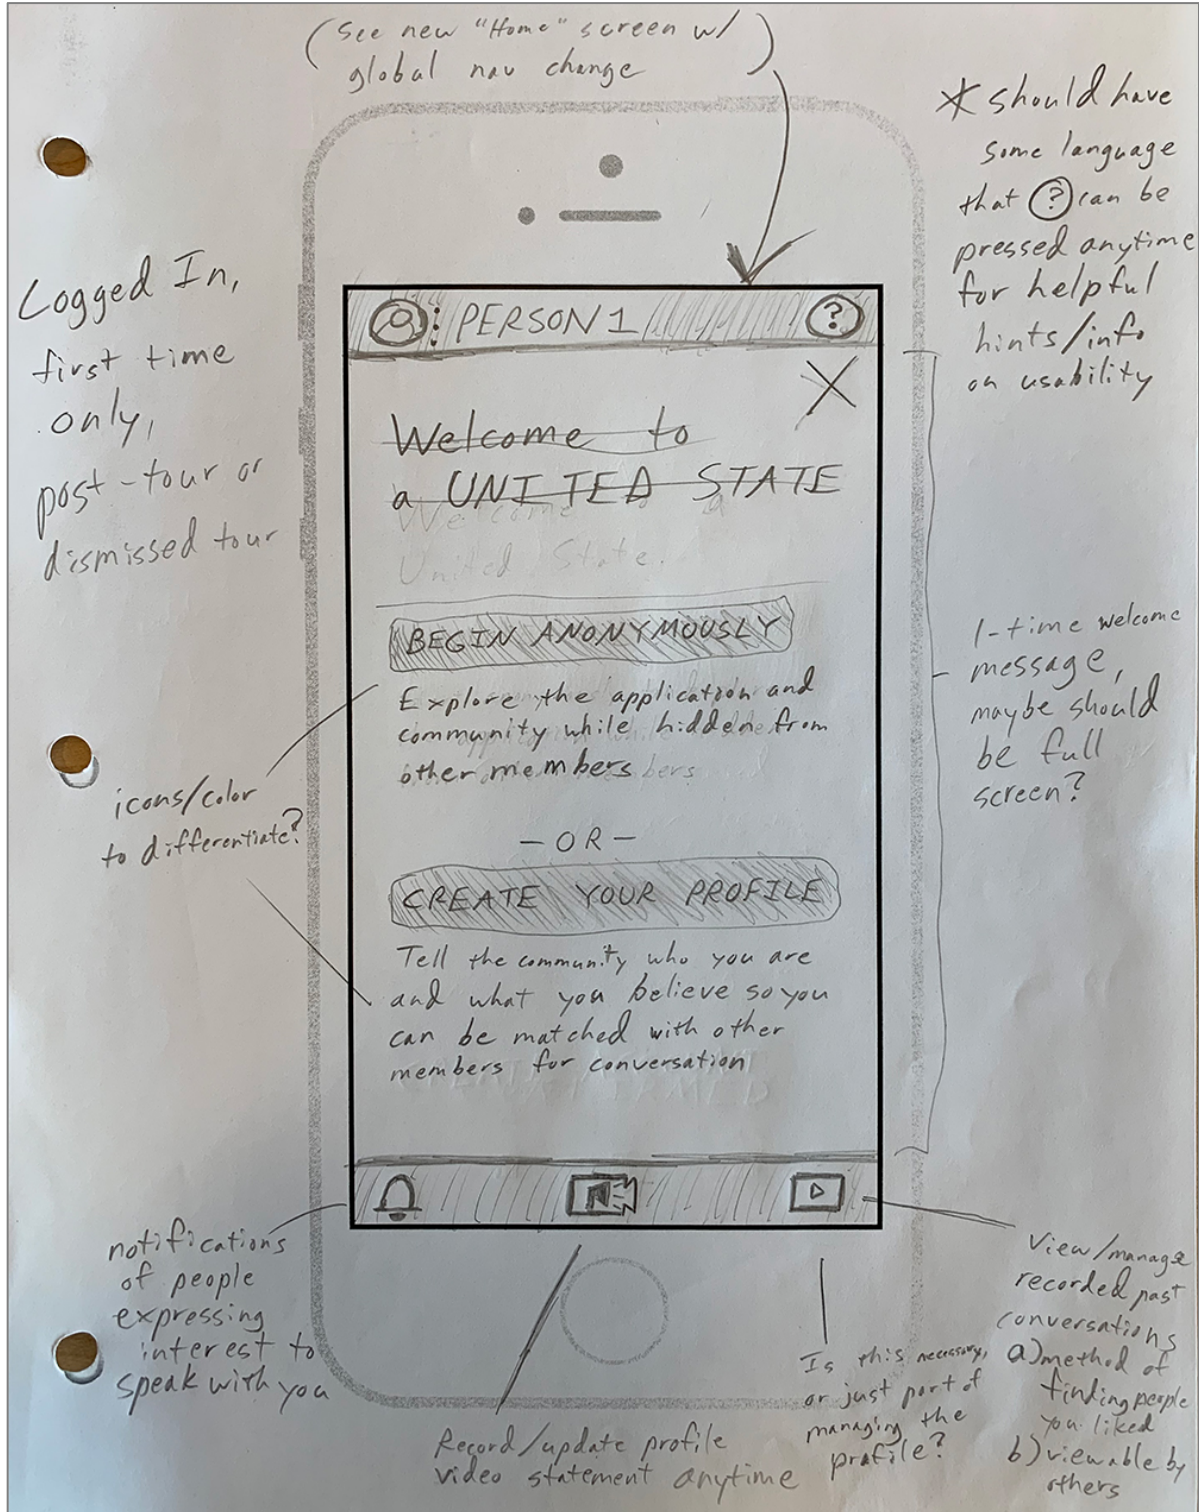 (See new "Home" screen w/
global nav change)
* should have
some language
that ? can be
pressed anytime
for helpful
hints/info
on usability
Logged In,
first time
only,
post-tour or
dismissed tour
PERSON 1
?
X
Welcome to
a UNITED STATE
Welcome to a
United State.
BEGIN ANONYMOUSLY
Explore the application and
community while hidden from
other members
icons/color
to differentiate?
1-time welcome
message,
maybe should
be full
screen?
- OR -
CREATE YOUR PROFILE
Tell the community who you are
and what you believe so you
can be matched with other
members for conversation
notifications
of people
expressing
interest to
speak with you
Record/update profile
video statement anytime
Is this necessary,
or just part of
managing the
profile?
View/manage
recorded past
conversations
a) method of
finding people
you liked
b) viewable by
others